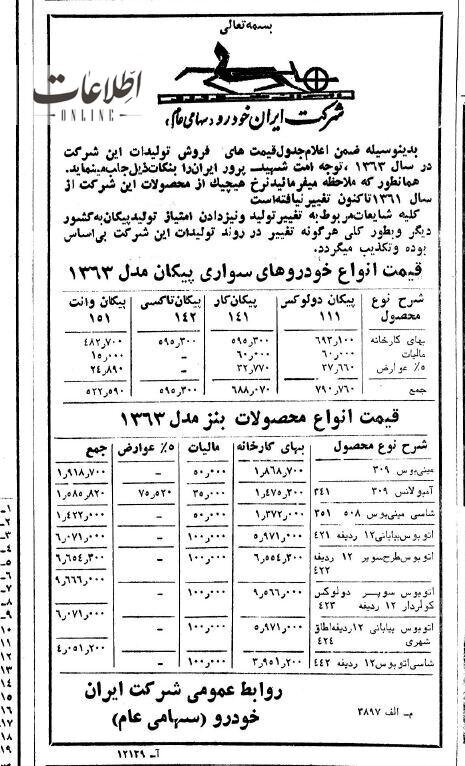 بسمه تعالی
اطلاعات
ONLINE
شرکت ایران خودرو «سهامی عام»
بدینوسیله ضمن اعلام جدول قیمت های فروش تولیدات این شرکت
در سال ۱۳۶۳، توجه امت شهید پرور ایران را بنکات ذیل جلب مینماید.
همانطور که ملاحظه میفرمائید نرخ هیچیک از محصولات این شرکت از
سال ۱۳۶۱ تاکنون تغییر نیافته است
کلیه شایعات مربوط به تغییر تولید و نیز دادن امتیاز تولید پیکان به کشور
دیگر و بطور کلی هرگونه تغییر در روند تولیدات این شرکت بی اساس
بوده و تکذیب میگردد.
قیمت انواع خودروهای سواری پیکان مدل ۱۳۶۳
شرح نوع محصول پیکان دولوکس ۱۱۱ پیکان کار ۱۴۱ پیکان تاکسی ۱۴۲ پیکان وانت ۱۵۱
بهای کارخانه ۶۹۳٫۱۰۰ ۵۹۵٫۳۰۰ ۵۹۵٫۳۰۰ ۴۸۲٫۷۰۰
مالیات ۶۰٫۰۰۰ ۶۰٫۰۰۰ – ۱۵٫۰۰۰
۵٪ عوارض ۳۷٫۶۶۰ ۳۲٫۷۷۰ – ۲۴٫۸۹۰
جمع ۷۹۰٫۷۶۰ ۶۸۸٫۰۷۰ ۵۹۵٫۳۰۰ ۵۲۲٫۵۹۰
قیمت انواع محصولات بنز مدل ۱۳۶۳
شرح نوع محصول بهای کارخانه مالیات ۵٪ عوارض جمع
مینی بوس ۳۰۹ ۱٫۸۶۸٫۷۰۰ ۵۰٫۰۰۰ – ۱٫۹۱۸٫۷۰۰
آمبولانس ۳۰۹ ۳۴۱ ۱٫۴۷۵٫۳۰۰ ۳۵٫۰۰۰ ۷۵٫۵۲۰ ۱٫۵۸۵٫۸۲۰
شاسی مینی بوس ۵۰۸ ۳۵۱ ۱٫۳۷۲٫۰۰۰ ۵۰٫۰۰۰ – ۱٫۴۲۲٫۰۰۰
اتوبوس بیابانی ۱۲ ردیفه ۴۲۱ ۵٫۹۷۱٫۰۰۰ ۱۰۰٫۰۰۰ – ۶٫۰۷۱٫۰۰۰
اتوبوس طرح سوپر ۱۲ ردیفه ۴۲۲ ۶٫۵۵۴٫۳۰۰ ۱۰۰٫۰۰۰ – ۶٫۶۵۴٫۳۰۰
اتوبوس سوپر دولوکس کولردار ۱۲ ردیفه ۴۲۳ ۹٫۵۶۶٫۰۰۰ ۱۰۰٫۰۰۰ – ۹٫۶۶۶٫۰۰۰
اتوبوس بیابانی ۱۲ ردیفه اطاق شهری ۴۲۴ ۵٫۹۷۱٫۰۰۰ ۱۰۰٫۰۰۰ – ۶٫۰۷۱٫۰۰۰
شاسی اتوبوس ۱۲ ردیفه ۴۴۲ ۳٫۹۵۱٫۲۰۰ ۱۰۰٫۰۰۰ – ۴٫۰۵۱٫۲۰۰
روابط عمومی شرکت ایران
خودرو (سهامی عام)
م‌ـ الف ۳۸۹۷
آـ ۱۲۱۲۹